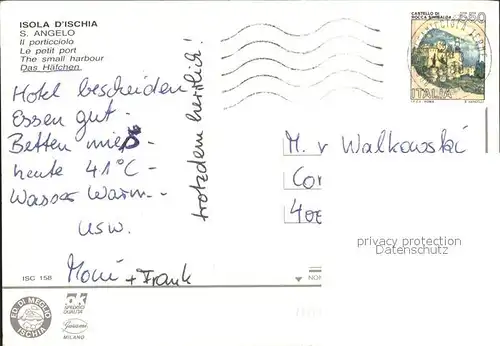 ISOLA D'ISCHIA
S. ANGELO
Il porticciolo
Le petit port
The small harbour
Das Häfchen.
Hotel bescheiden
Essen gut -
Betten mies -
heute 41°C -
Wasser warm -
usw.
Moni + Frank
trotzdem herrlich!
ISC 158
ED. DI MEGLIO
ISCHIA
MILANO
CASTELLO DI
ROCCA SINIBALDA
550
ITALIA
M. v Walkowski
Cor
400
privacy protection
Datenschutz
NON